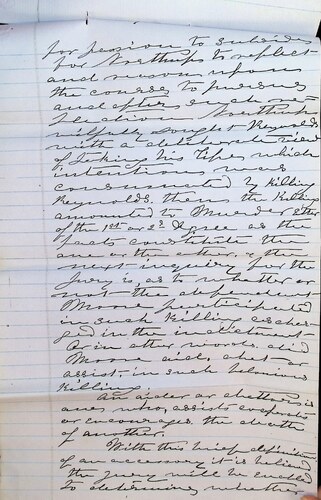 for passion to subside
for Northup to reflect
and reason upon
the course to pursue
and after such re-
flection Northup
wilfully sought Reynolds
with a deliberate view
of taking his life which
intentions was
consumated by killing
Reynolds, then the killing
amounted to Murder either
of the 1st or 2d Degree as the
facts constitute the
one or the other, & the
next inquiry for the
Jury is, as to whether or
not the defendant
Moore participated
in such killing as char-
ged in the indictment
Or in other words did
Moore aid, abet or
assist, in such felonious
killing.
An aider or abettor is
one who, assists
or encourages the death
of another.
With this brief definition
of an accessory it is believed
the Jury will be enabled
to determine whether